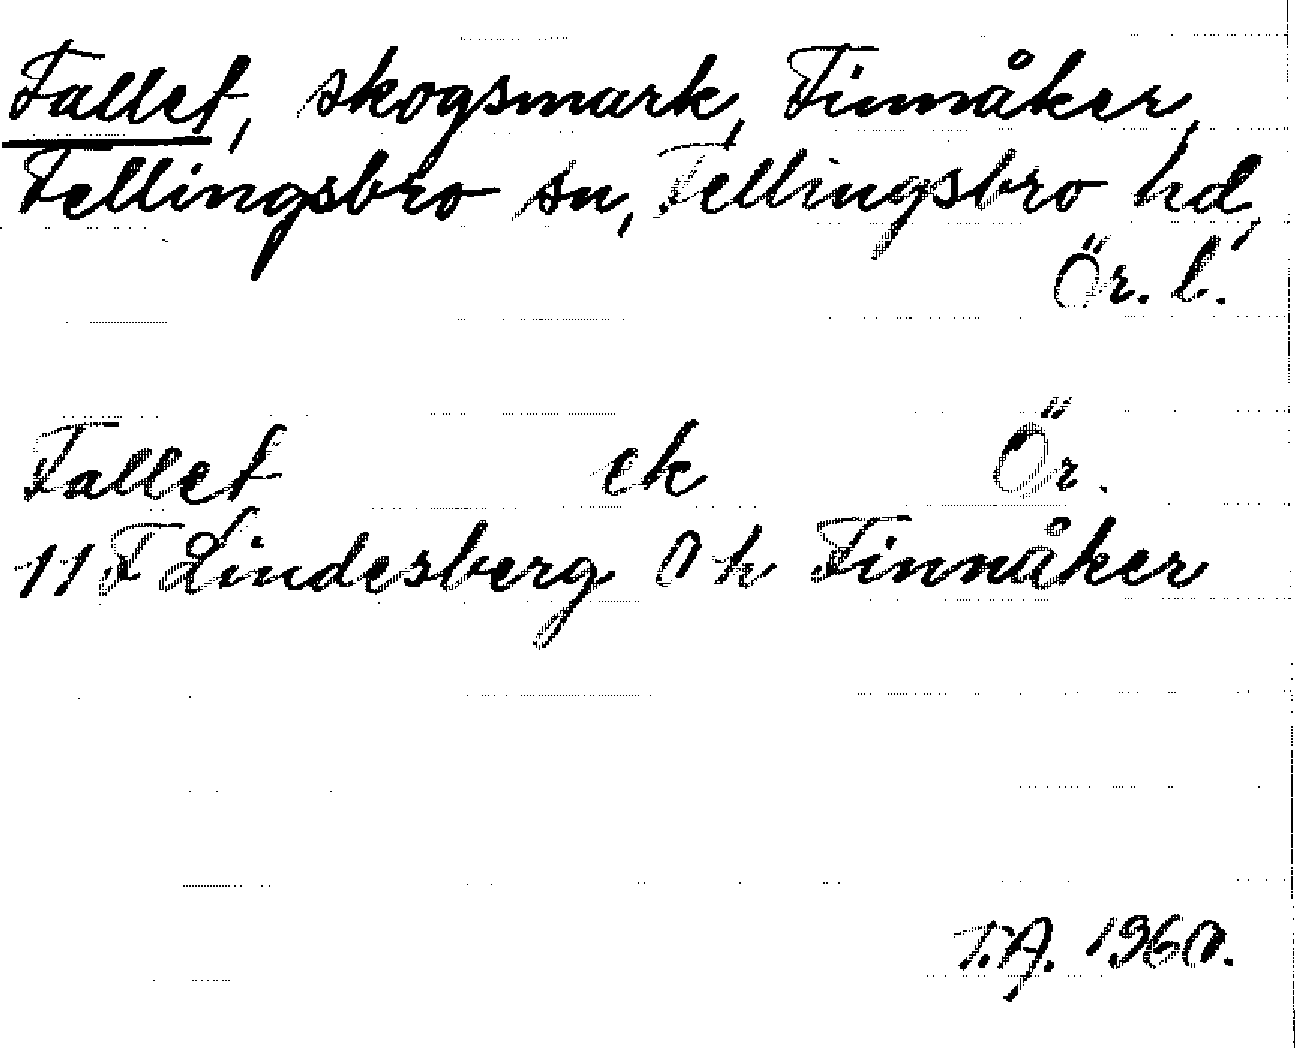 Fallet, skogsmark, Finnåker,
Fellingsbro sn, Fellingsbro hd,
Ör. l.
Fallet ek Ör.
11 F Lindesberg O h Finnåker
T.A. 1960.